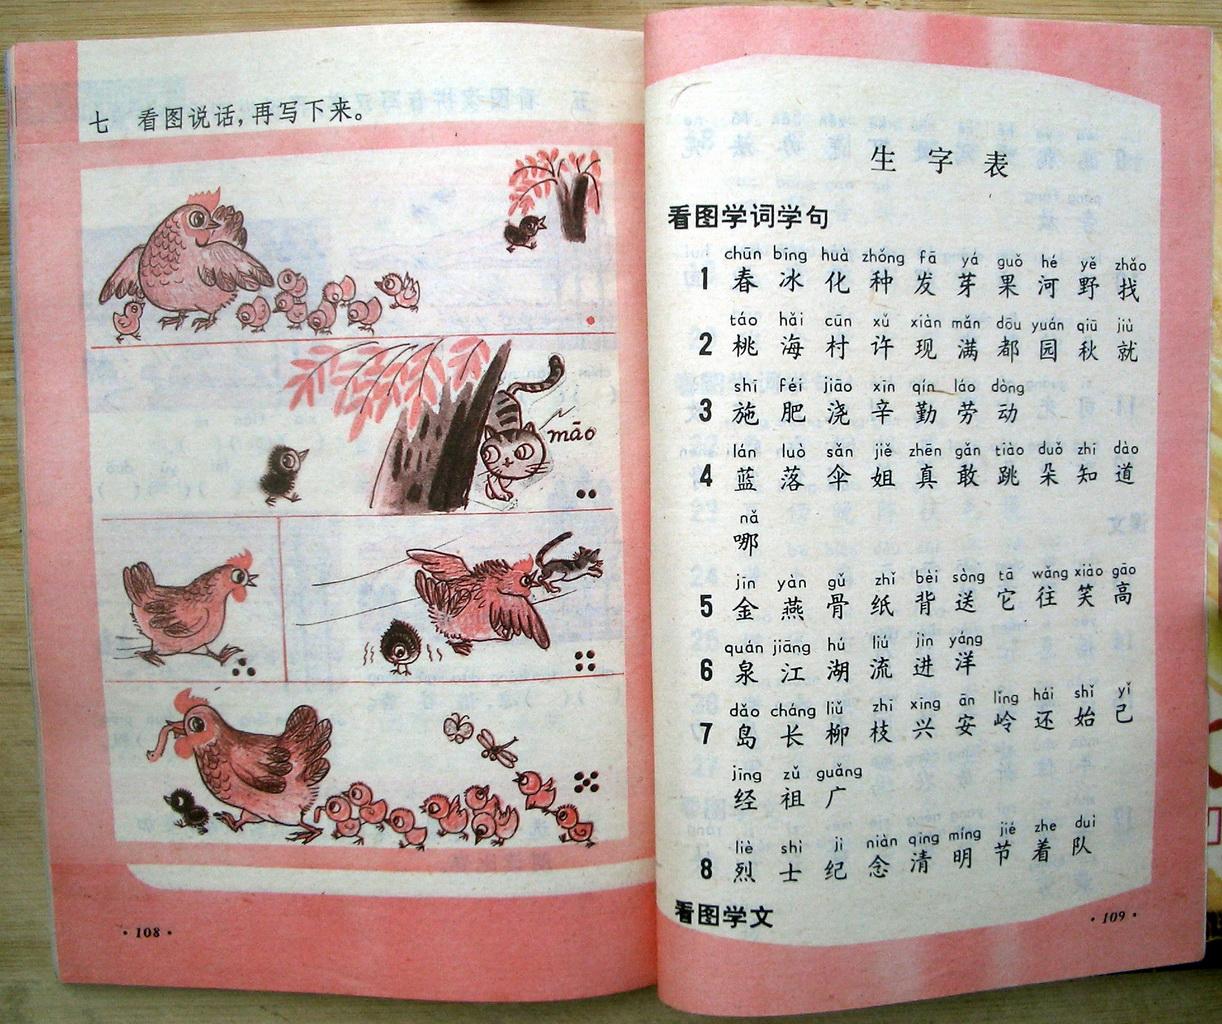 七 看图说话，再写下来。
māo
·108·
生字表
看图学词学句
chūn bīng huà zhǒng fā yá guǒ hé yě zhǎo
1 春 冰 化 种 发 芽 果 河 野 找
táo hǎi cūn xǔ xiàn mǎn dōu yuán qiū jiù
2 桃 海 村 许 现 满 都 园 秋 就
shī féi jiāo xīn qín láo dòng
3 施 肥 浇 辛 勤 劳 动
lán luò sǎn jiě zhēn gǎn tiào duǒ zhī dào
4 蓝 落 伞 姐 真 敢 跳 朵 知 道
nǎ
哪
jīn yàn gǔ zhǐ bèi sòng tā wǎng xiào gāo
5 金 燕 骨 纸 背 送 它 往 笑 高
quán jiāng hú liú jìn yáng
6 泉 江 湖 流 进 洋
dǎo cháng liǔ zhī xīng ān lǐng hái shǐ yǐ
7 岛 长 柳 枝 兴 安 岭 还 始 已
jīng zǔ guǎng
经 祖 广
liè shì jì niàn qīng míng jié zhe duì
8 烈 士 纪 念 清 明 节 着 队
看图学文
·109·